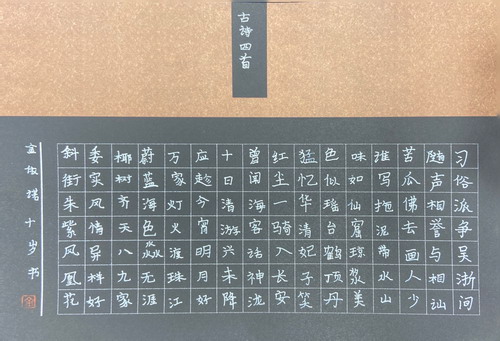 古詩四首
习俗派争吴浙间
随声相誉与相讪
苦瓜佛去画人少
谁写拖泥带水山
味如仙窟琼浆美
色似瑶台鹤顶丹
猛忆华清妃子笑
红尘一骑入长安
曾闻海客话神泷
十日清游兴未降
应趁今宵明月好
万家灯火渡珠江
蔚蓝海色淼无涯
椰树齐天八九家
委实风情异样好
斜街朱紫凤凰花
十岁书